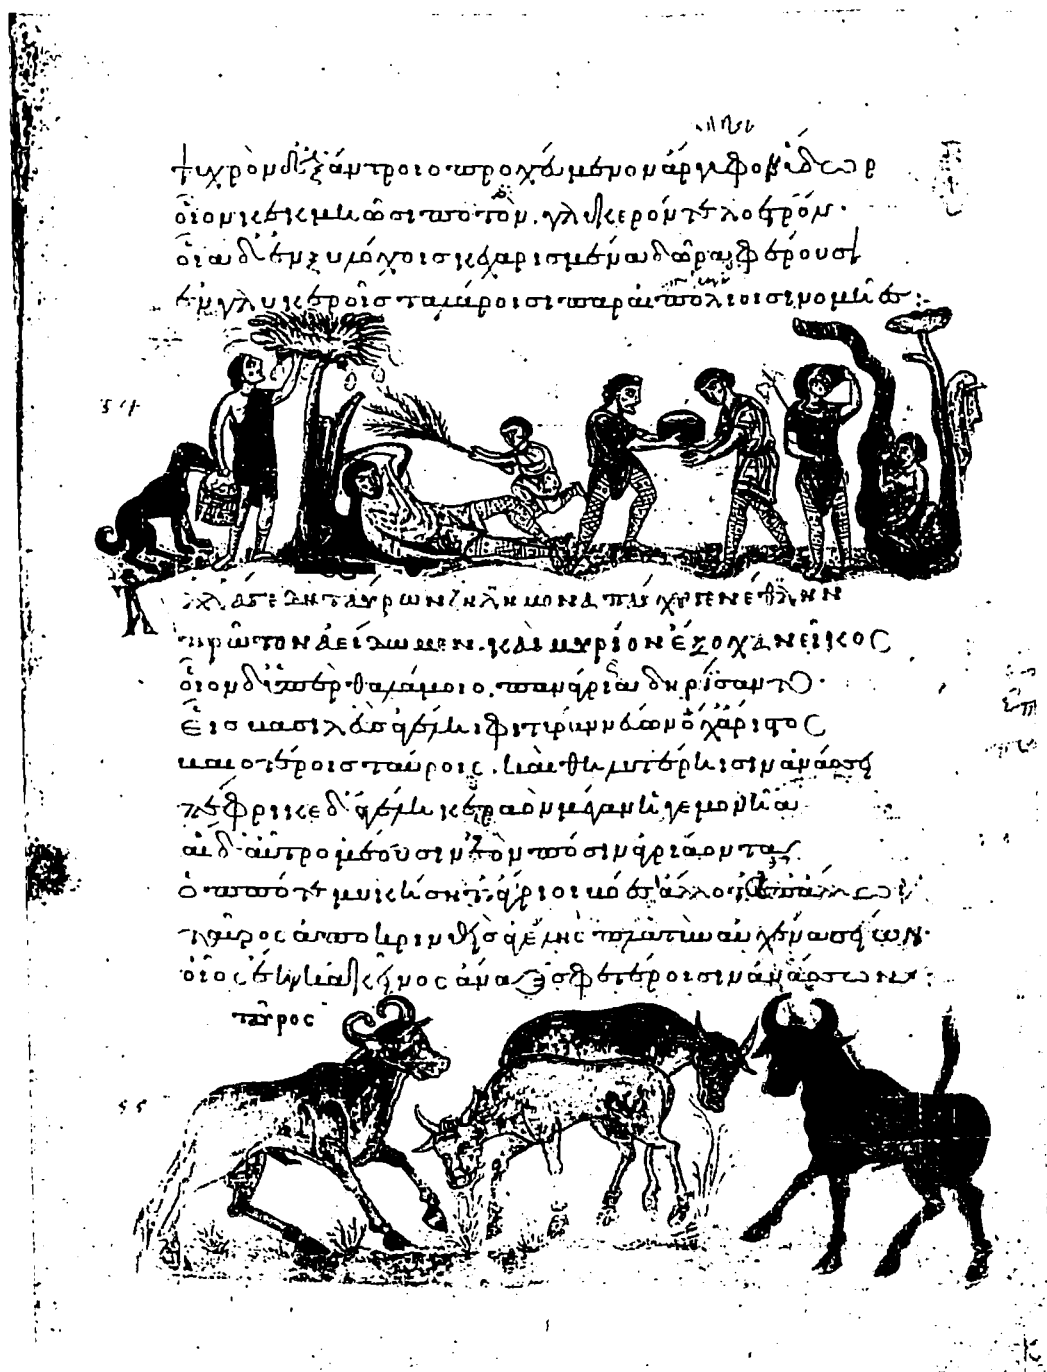 ψυχρὸν δ' ἐξ ἄντροιο προχεόμενον ἀργυφον ὕδωρ
οἷον κεκμηῶσι ποτὸν. γλυκερόν τε λοετρόν·
οἷα δ' ἐν ξυλόχοις κεχαρισμένα δῶρα φέρουσι
ἐν γλυκεροῖς ταλάροισι παρ' αἰπολίοισι νομῆες:
ἈΛΛ' ἌΓΕ ΔῊ ΤΑΎΡΩΝ ΖΗΛΉΜΟΝΑ ΠΆΓΧΥ ΓΕΝΈΘΛΗΝ
ΠΡῶΤΟΝ ἈΕΊΔΩΜΕΝ. ΚΑῚ ΜΥΡΊΟΝ ἜΞΟΧΑ ΝΕῖΚΟΣ
οἷον δ' ὑπὲρ θαλάμοιο. πανάγρια δηρίσαντο·
εἷς βασιλεὺς ἀγέληφι τυραννέων ὄχ' ἄριστος
καὶ οτέροις ταύροις. καὶ θηλυτέρηισιν ἀνάσσει
πέφρικε δ' ἀγέλη κεραὸν μέγαν ἡγεμονῆα
αἱ δ' αὖ τρομέουσιν ἑὸν πόσιν ἀγριάοντα.
ὁππότε μυκήσητ' ἄγριοι βόες ἀλλ'
ταῦρος ἀποκρινθεὶς ἀγέλης αὐχένα σείων·
οἶος ἔῃ καὶ κεῖνος ἄναξ σφετέροισιν ἀνάσσων:
ταῦρος
54
55